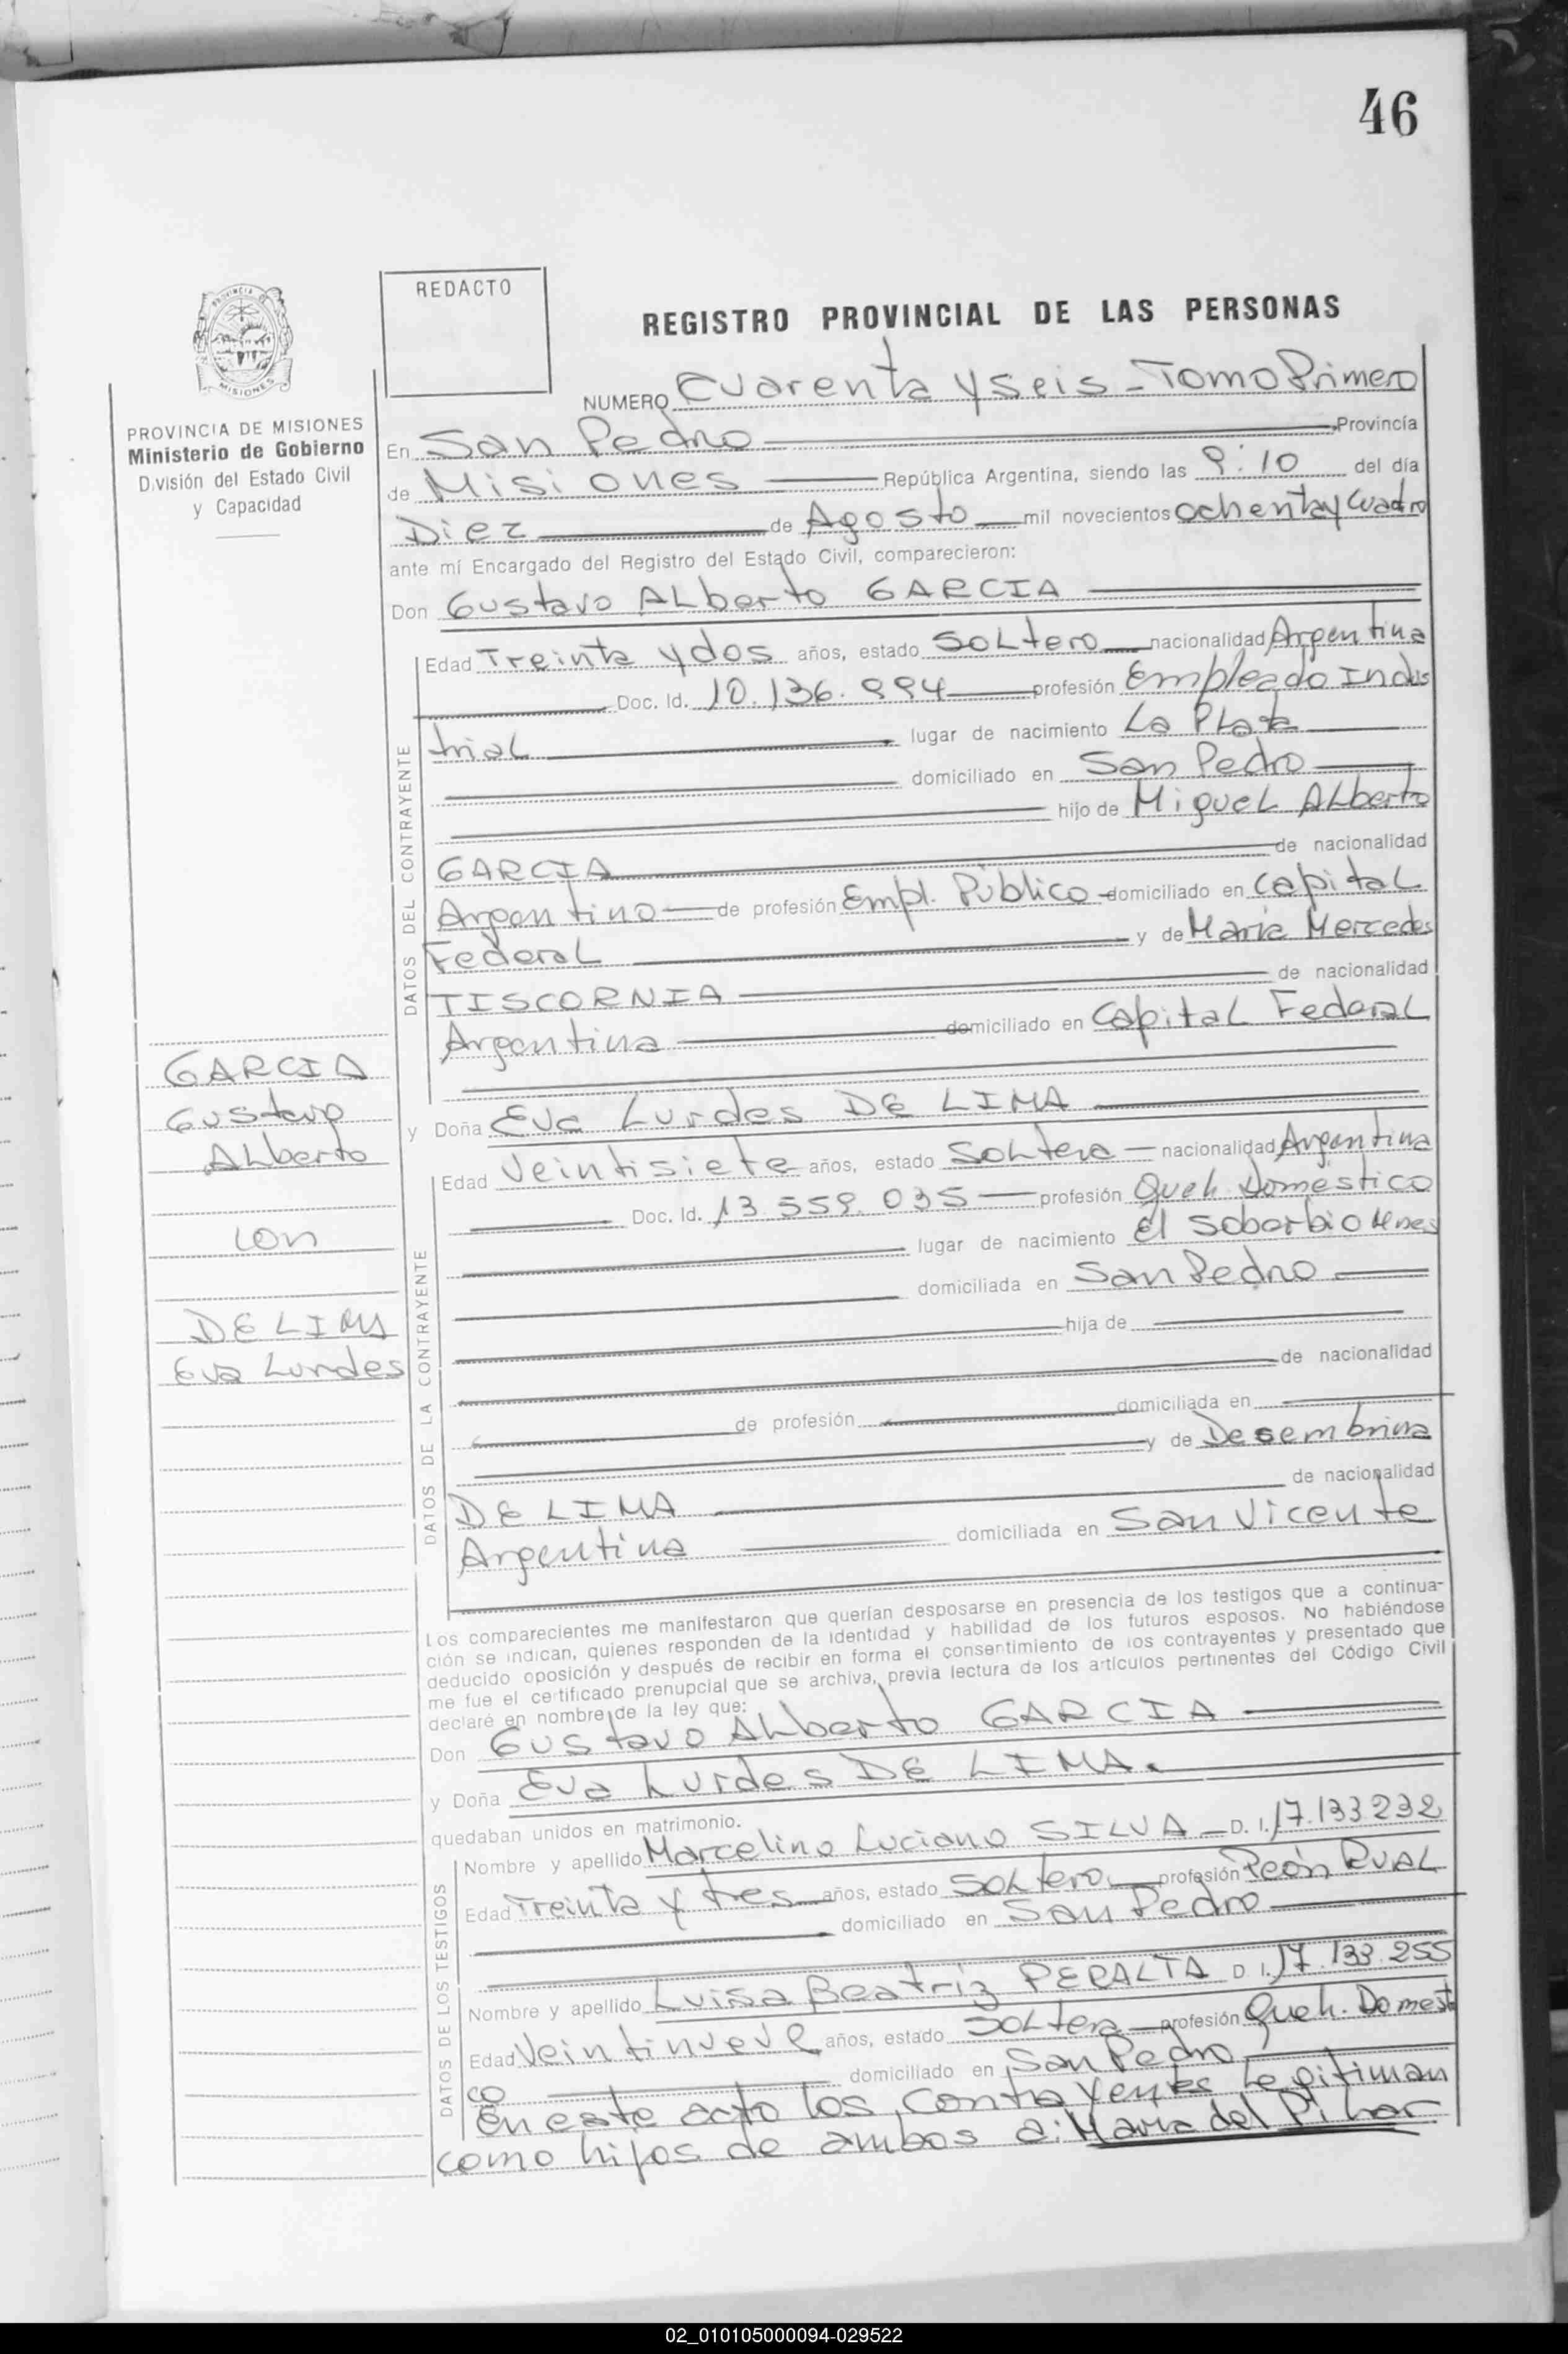 46
REDACTO
REGISTRO PROVINCIAL DE LAS PERSONAS
PROVINCIA DE MISIONES
Ministerio de Gobierno
División del Estado Civil
y Capacidad
NUMERO Cuarenta y seis - Tomo Primero
En San Pedro Provincia
de Misiones República Argentina, siendo las 9:10 del día
Diez de Agosto mil novecientos ochenta y Cuatro
ante mí Encargado del Registro del Estado Civil, comparecieron:
Don Gustavo ALberto GARCIA
DATOS DEL CONTRAYENTE
Edad Treinta y dos años, estado SoLtero nacionalidad Argentina
Doc. Id. 10.136.994 profesión Empleado Indus
triaL lugar de nacimiento La PLata
domiciliado en San Pedro
hijo de MigueL ALberto
GARCIA de nacionalidad
Argentino de profesión Empl. Público domiciliado en CapitaL
FederaL y de María Mercedes
TISCORNIA de nacionalidad
Argentina domiciliado en CapitaL FederaL
GARCIA
Gustavo
ALberto
con
DE LIMA
Eva Lurdes
y Doña Eva Lurdes DE LIMA
DATOS DE LA CONTRAYENTE
Edad Veintisiete años, estado SoLtera nacionalidad Argentina
Doc. Id. 13.559.035 profesión Queh. Doméstico
lugar de nacimiento El Soberbio Mnes
domiciliada en San Pedro
hija de
de nacionalidad
de profesión domiciliada en
y de Desembrina
DE LIMA de nacionalidad
Argentina domiciliada en San Vicente
Los comparecientes me manifestaron que querían desposarse en presencia de los testigos que a continua-
ción se indican, quienes responden de la identidad y habilidad de los futuros esposos. No habiéndose
deducido oposición y después de recibir en forma el consentimiento de los contrayentes y presentado que
me fue el certificado prenupcial que se archiva, previa lectura de los artículos pertinentes del Código Civil
declaré en nombre de la ley que:
Don Gustavo ALberto GARCIA
y Doña Eva Lurdes DE LIMA.
quedaban unidos en matrimonio.
DATOS DE LOS TESTIGOS
Nombre y apellido Marcelino Luciano SILVA D. I. 17.133232
Edad Treinta y tres años, estado SoLtero profesión Peón RuAL
domiciliado en San Pedro
Nombre y apellido Luisa Beatriz PERALTA D I. 17.133.255
Edad Veintinueve años, estado SoLtera profesión Queh. Domest
co domiciliado en San Pedro
En este acto los Contrayentes Legitiman
como hijos de ambos a: María del Pilar
02_010105000094-029522